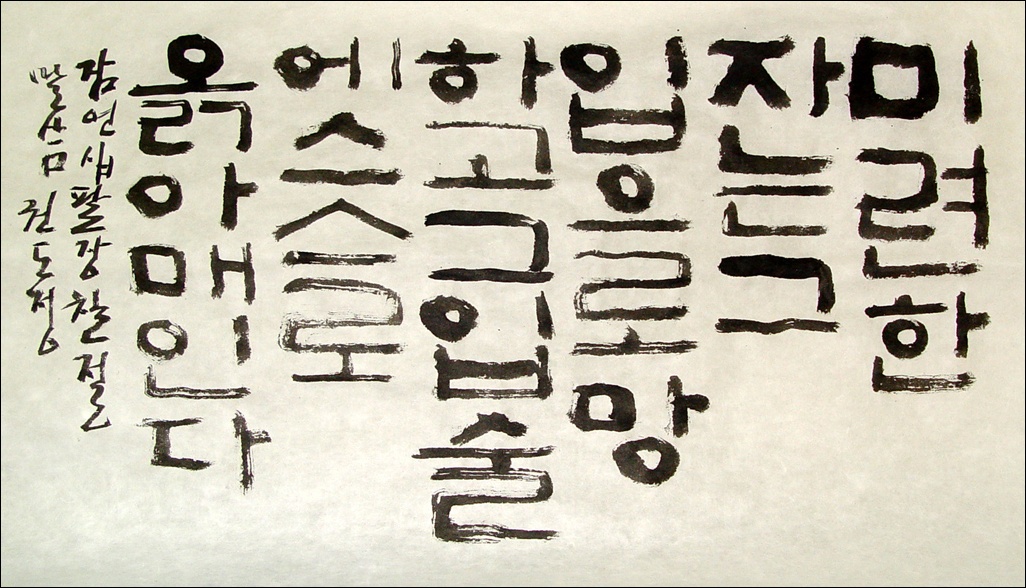 미련한
자는그
입으로망
하고그입술
에스스로
옭아매인다
잠언십팔장칠절
권도정